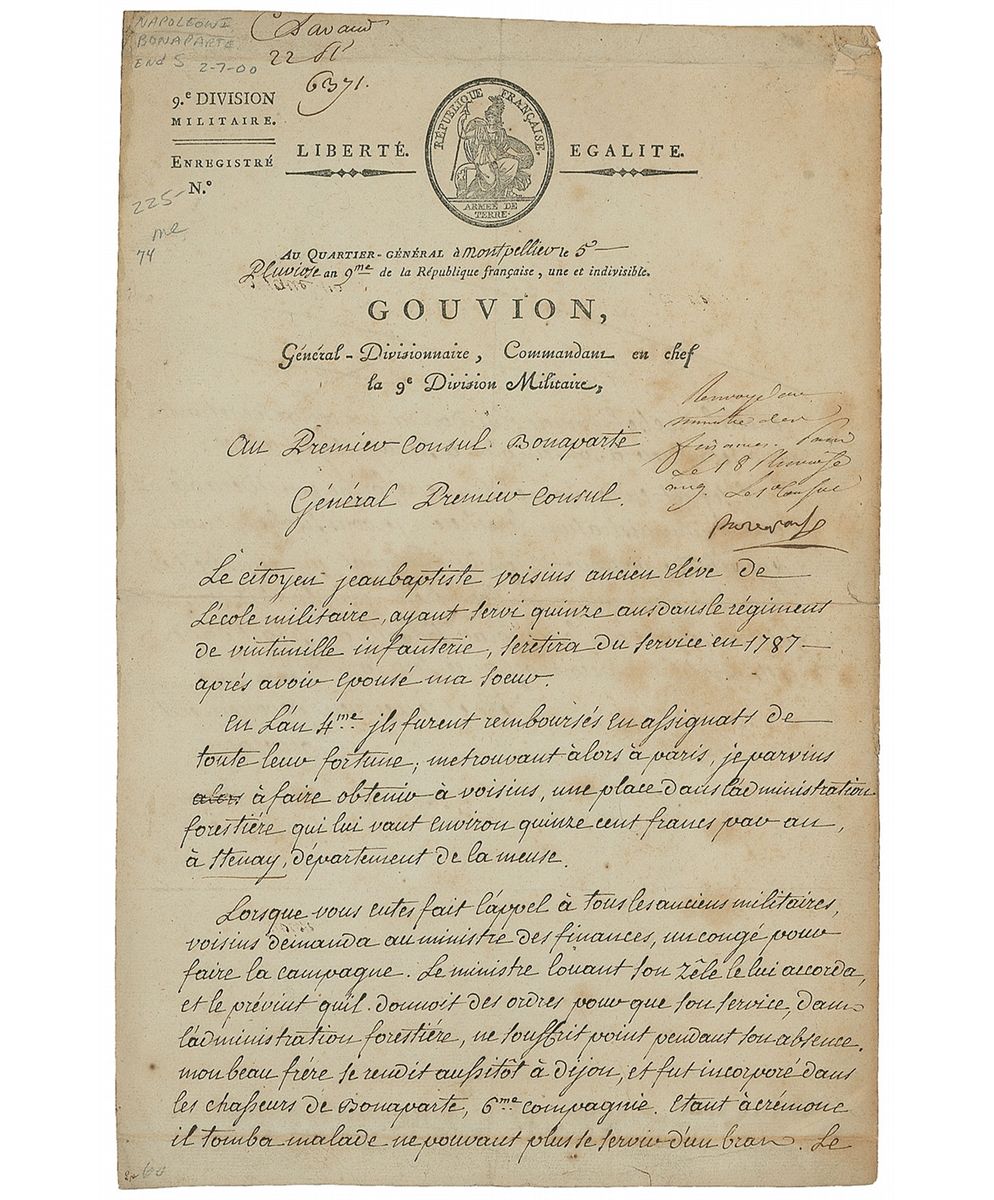 NAPOLEON I
BONAPARTE
END S 2-7-00
22
6371.
9.e DIVISION
MILITAIRE.
ENREGISTRÉ
N.o
225-
me
74
LIBERTÉ.
RÉPUBLIQUE FRANÇAISE.
ARMÉE DE
TERRE.
EGALITE.
AU QUARTIER-GÉNÉRAL à montpellier le 5
Pluviose an 9me de la République française, une et indivisible.
GOUVION,
Général-Divisionnaire, Commandant en chef
la 9e Division Militaire,
Renvoyé au
ministre des
finances. Paris
Le 18 Pluviose
an 9. Le 1er Consul
Au Premier Consul Bonaparte
Général Premier Consul.
Le citoyen jeanbaptiste voisins ancien élève de
L'école militaire, ayant servi quinze ans dans le régiment
de vintimille infanterie, se retira du service en 1787
aprés avoir épousé ma soeur.
En L'an 4me jls furent remboursés en assignats de
toute leur fortune; me trouvant àlors à paris, je parvins
alors à faire obtenir à voisins, une place dans l'administration
forestiére qui lui vaut environ quinze cent francs par an,
à Stenay, département de la meuse.
Lorsque vous eutes fait l'appel à tous les anciens militaires,
voisins demanda au ministre des finances, un congé pour
faire la campagne. Le ministre louant son zêle le lui accorda,
et le prévint quil donnoit des ordres pour que son service, dans
l'administration forestiére, ne souffrit point pendant son absence.
mon beau frére se rendit aussitôt à dijon, et fut incorporé dans
les chasseurs de Bonaparte, 6me compagnie. Etant à crémone
il tomba malade ne pouvant plus se servir d'un bras. Le